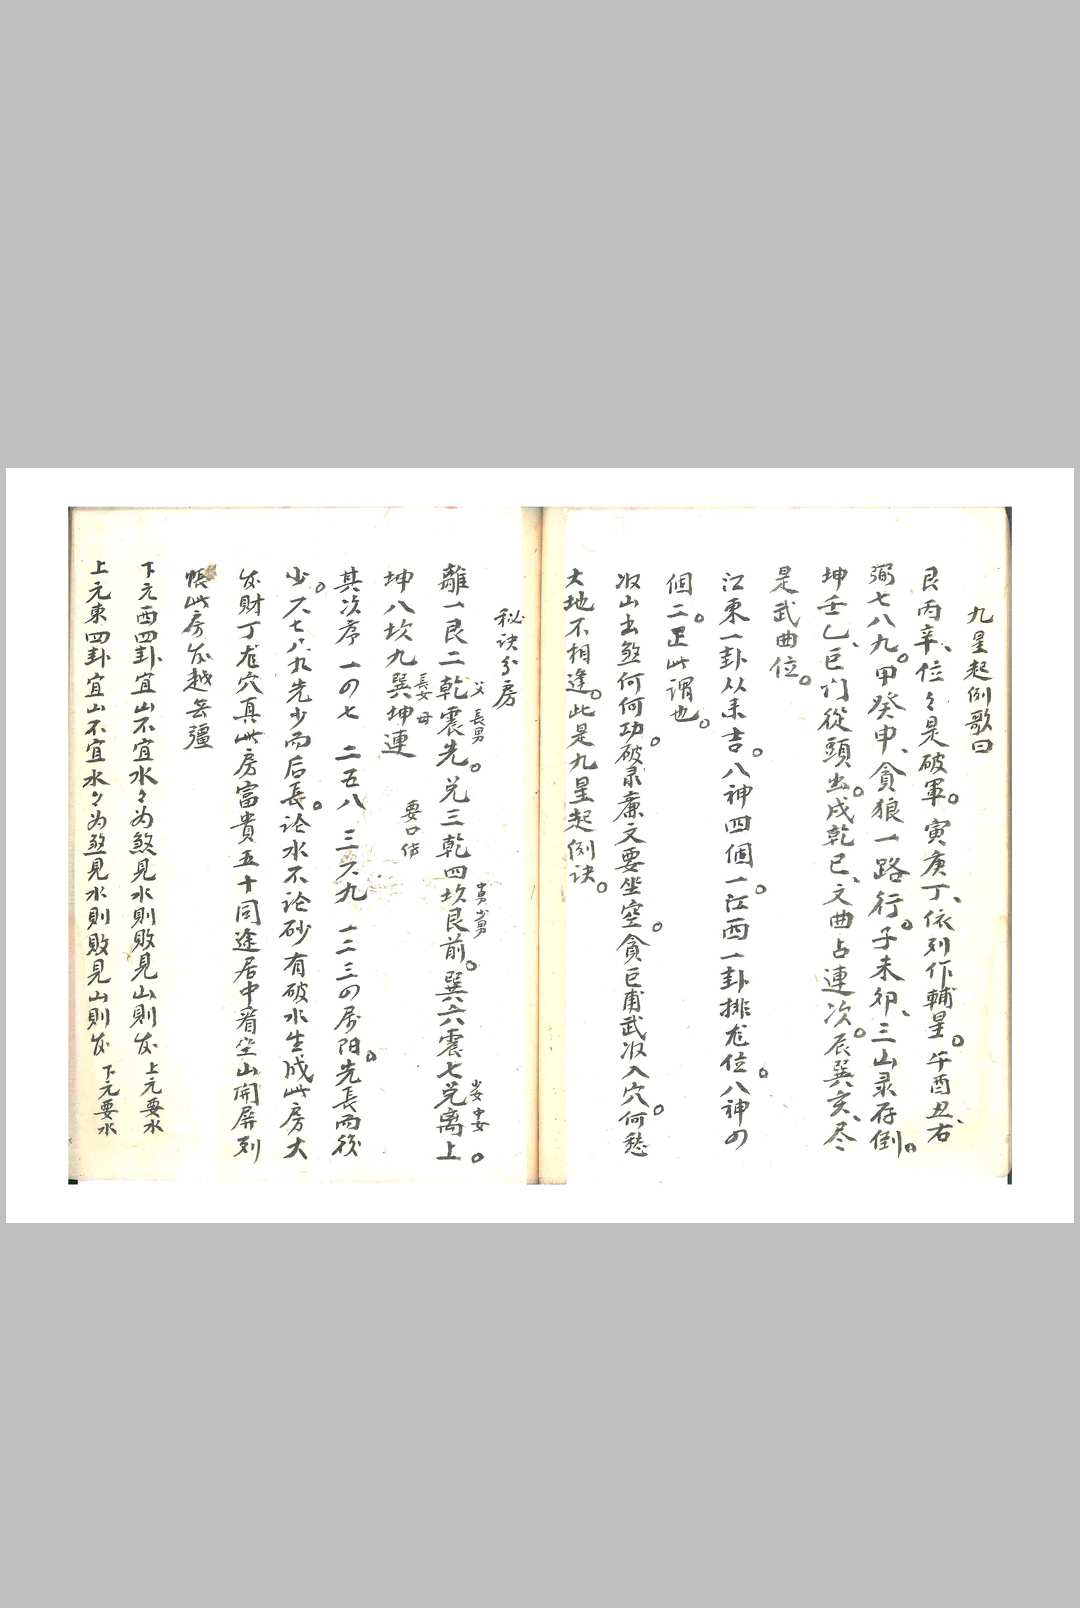 九星起例歌曰
艮丙辛、位々是破軍。寅庚丁、依列作輔星。午酉丑、右
弼七八九。甲癸申、貪狼一路行。子未卯、三山录存倒。
坤壬乙、巨门從頭出。戌乾巳、文曲占連次。辰巽亥、尽
是武曲位。
江東一卦从来吉。八神四個一。江西一卦排龙位。八神の
個二。正此謂也。
收山出煞何何功。破录廉文要坐空。貪巨甫武收入穴何愁
大地不相逢。此是九星起例诀。
秘诀分房
離一艮二乾震先。兑三乾四坎艮前。巽六震七兑离上。
父 長男 中男 少男 少女 中女
坤八坎九巽坤連
長女 母 要口传
其次序 一の七 二五八 三六九 一二三の房阳。先長而後
少。六七八九先少而后長。论水不论砂有破水生成此房大
发財丁龙穴真此房富貴五十同途居中看坐山開屏列
帳此房发越无疆
下元西四卦宜山不宜水々为煞見水則敗見山則发 上元要水
上元東四卦宜山不宜水々为煞見水則敗見山則发 下元要水